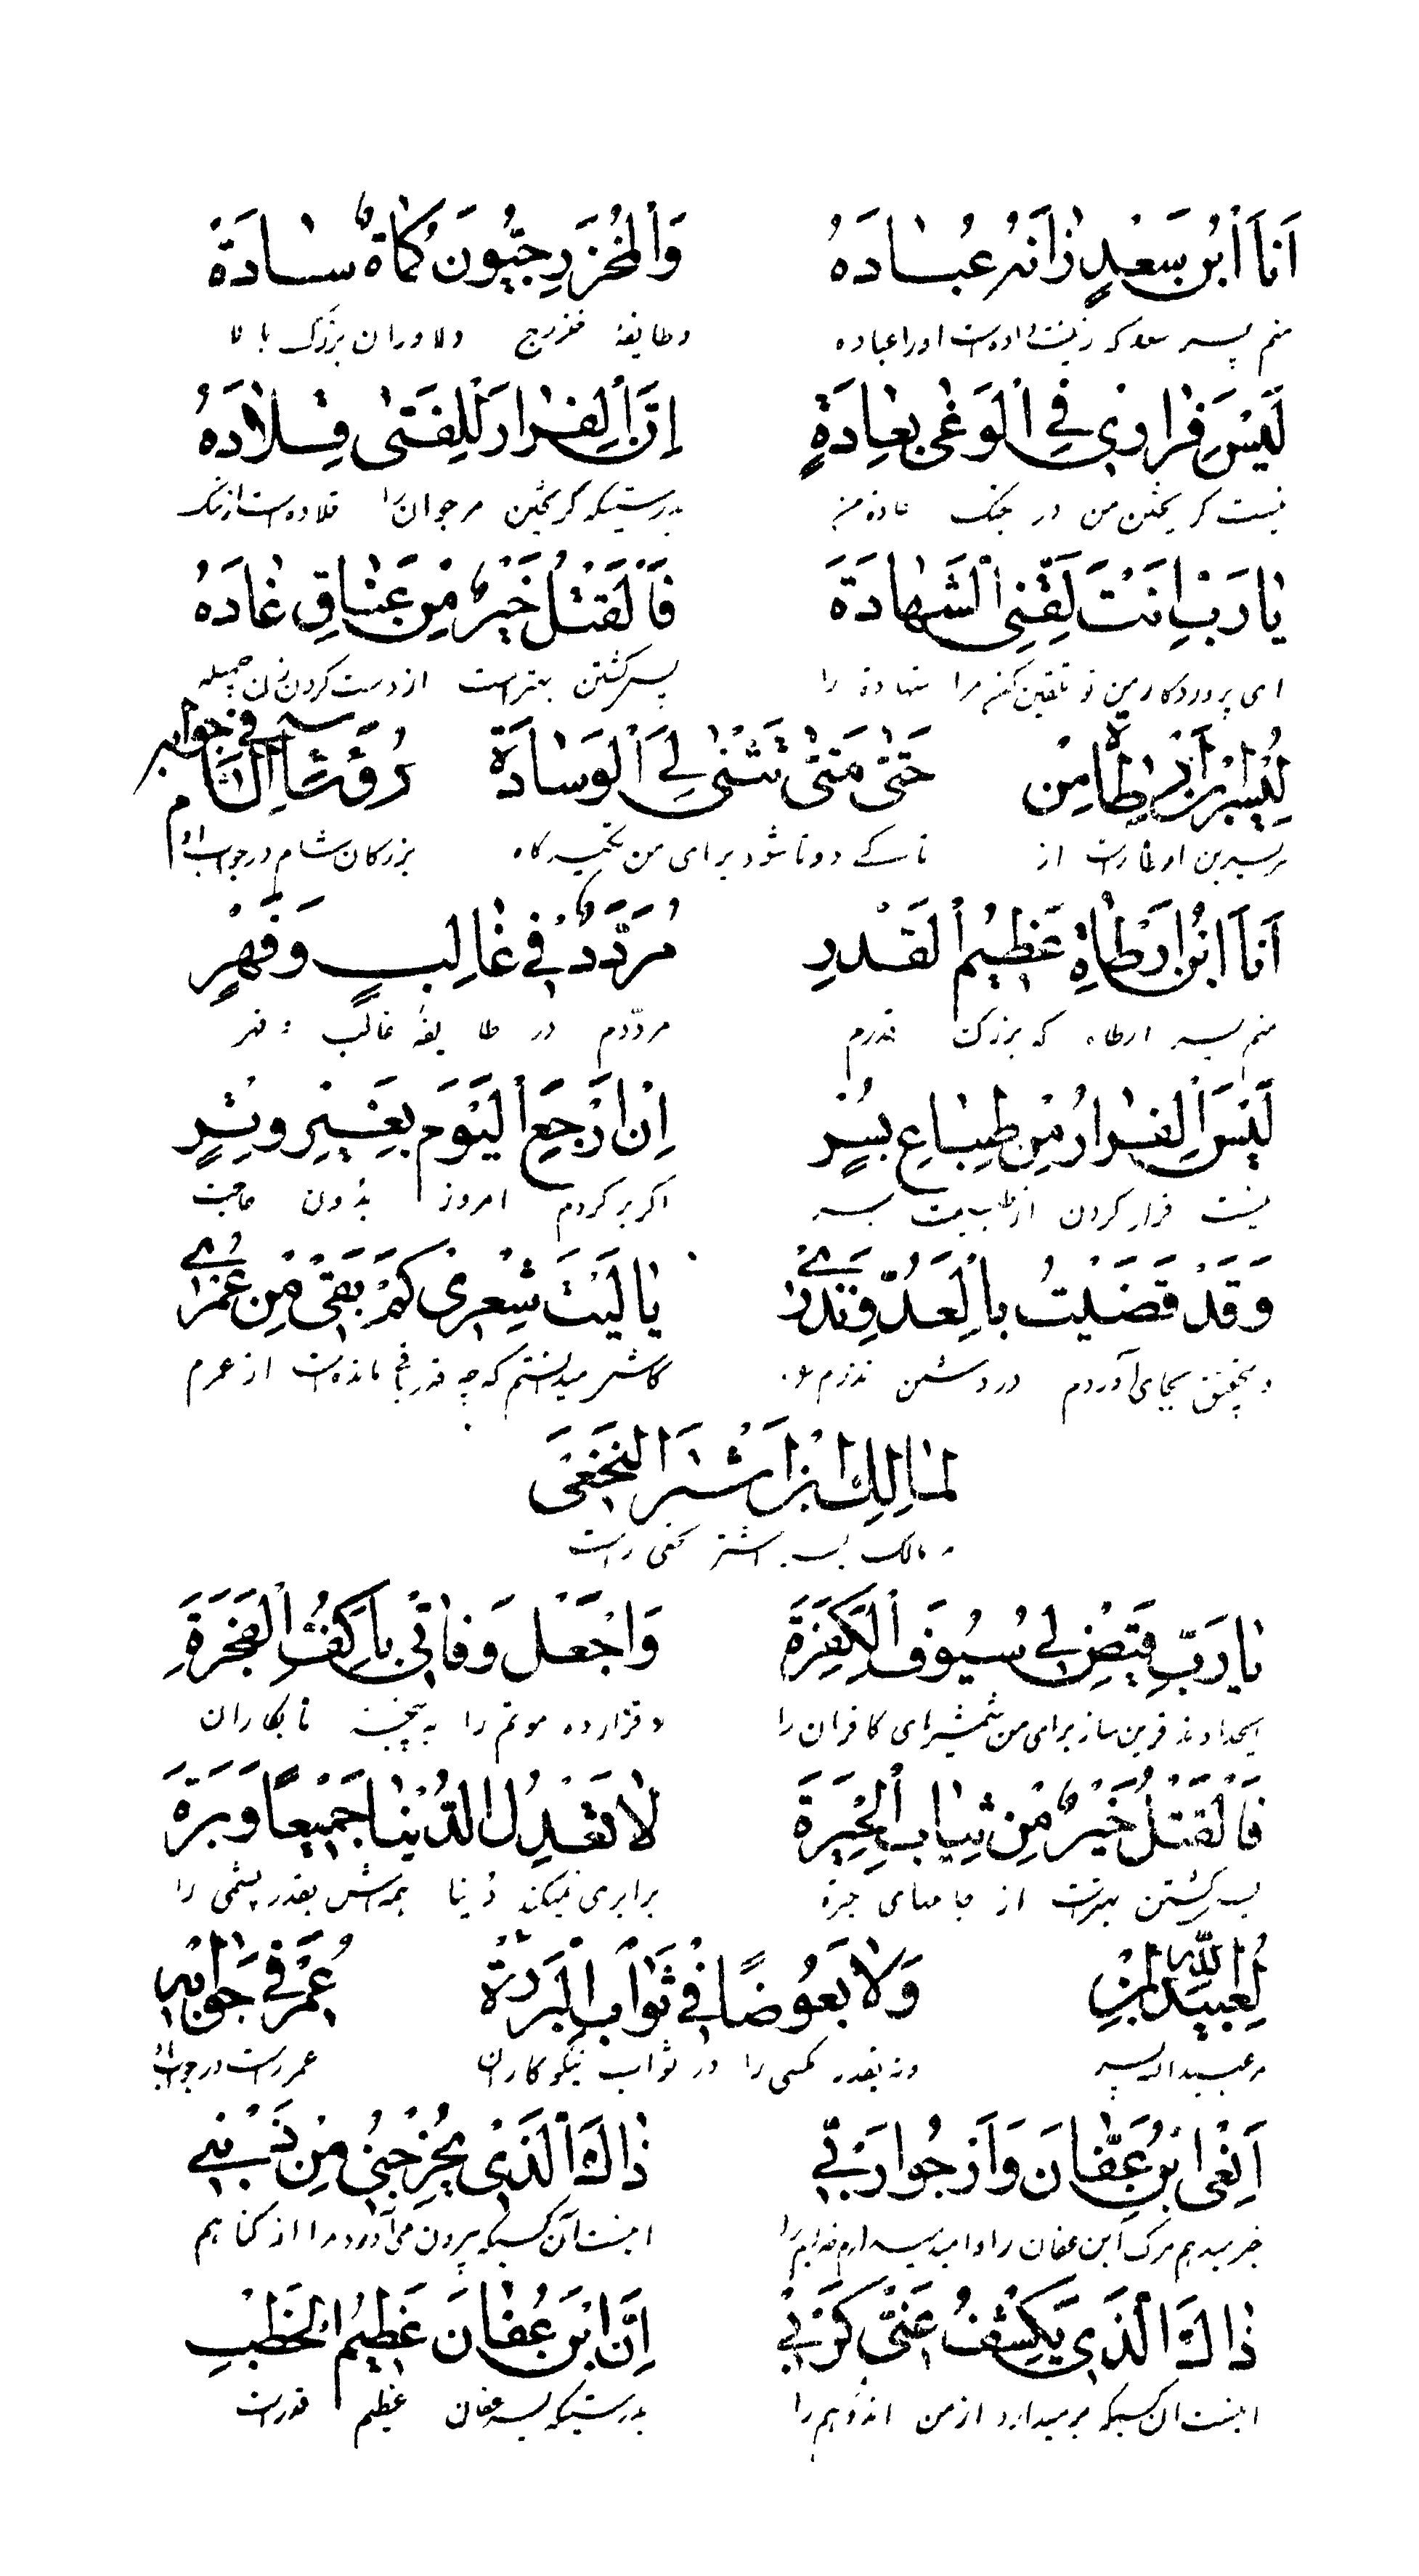 اَنَا اَبْنُ سَعْدٍ زٰانَهُ عُبٰادَهُ وَاْلخَزْرَجِيُّونَ كُمٰاةٌ سٰادَةْ
منم پسر سعد که زینت داده است او را عباده و طایفهٔ خزرج دلاوران بزرگ با لا
لَيْسَ فِرٰارِيْ فِي اْلوَغٰى بِعٰادَةٍ اِنَّ اْلفِرٰارَ لِلْفَتٰى قِلٰادَهُ
نیست گریختن من در جنگ عادة من بدرستیکه گریختن مر جوان را قلاده است از ننگ
يٰا رَبِّ اَنْتَ لَقِّنِي اْلشَّهٰادَةَ فَاْلقَتْلُ خَيْرٌ مِنْ عَنٰاقِ غٰادَهُ
ای پروردگار من تو تلقین کن مرا شهادة را پس کشتن بهتر است از دست کردن زن جمیله
لِبُسْرِ ابْنِ اَرْطٰاةَ مِنْ حَتّٰى مَتٰى تُثْنٰى لِيَ اْلوَسٰادَةْ رُؤَسٰاءِ الشّٰام فی جوابه
بسر بن ارطاة راست از تا کے دوتا شود برای من تکیه گاه بزرگان شام در جواب او
اَنَا ابْنُ اَرْطٰاةَ عَظِيْمُ اْلقَدْرِ مُرَدَّدٌ فِيْ غٰالِبٍ وَفَهْرٍ
منم پسر ارطاه که بزرگ قدرم مرددم در طایفهٔ غالب و فهر
لَيْسَ اْلفِرٰارُ مِنْ طِبٰاعِ بُسْرٍ اِنْ اَرْجِعِ اْليَوْمَ بِغَيْرِ وِتْرٍ
نیست فرار کردن از طبیعت بسر اگر برگردم امروز بدون حاجت
وَقَدْ قَضَيْتُ بِاْلعَدُوِّ نَذْرِيْ يٰا لَيْتَ شِعْرِيْ كَمْ بَقٰى مِنْ عُمْرِيْ
و بتحقیق بجای آوردم در دشمن نذرم را کاش میدانستم که چه قدر باقی مانده است از عمرم
لِمٰالِكِ ابْنِ اَشْتَرَ النَّخَعِيّ
مر مالک پسر اشتر نخعی راست
يٰا رَبِّ قَيِّضْ لِيْ سُيُوْفَ اْلكَفَرَةَ وَاجْعَلْ وَفٰاتِيْ بِاَكُفِّ اْلفَجَرَةِ
ایخداوند قرین ساز برای من شمشیرهای کافران را و قرار ده موتم را به پنجهٔ نابکاران
فَاْلقَتْلُ خَيْرٌ مِنْ ثِيٰابِ اْلحِبَرَةَ لٰا تَعْدِلُ الدُّنْيٰا جَمِيْعًا وَبَرَةَ
پس کشتن بهتر است از جامهای حبرة برابری نمیکند دنیا همه اش بقدر پشمی را
لِعُبَيْدِ اللّٰهِ ابْنِ وَلٰا بَعُوْضًا فِيْ ثَوٰابِ اْلبَرَرَةْ عُمَرَ فِيْ جَوٰابِهِ
مر عبید الله پسر و نه بقدر مگسی را در ثواب نیکوکاران عمر راست در جواب او
اَنْعَى ابْنَ عَفّٰانَ وَاَرْجُوْا رَبِّيْ ذٰاكَ اْلَّذِيْ يُخْرِجُنِيْ مِنْ ذَنْبِيْ
خبر میدهم مرگ ابن عفان را و امید میدارم خدایم را اینست آن کسیکه بیرون می آورد مرا از گناهم
ذٰاكَ الَّذِيْ يَكْشِفُ عَنِّيْ كَرْبِيْ اِنَّ ابْنَ عُفّٰانَ عَظِيْمُ الْخَطْبِ
اینست ان کسیکه برمیدارد از من اندوهم را بدرستیکه پسر عفان عظیم قدر است